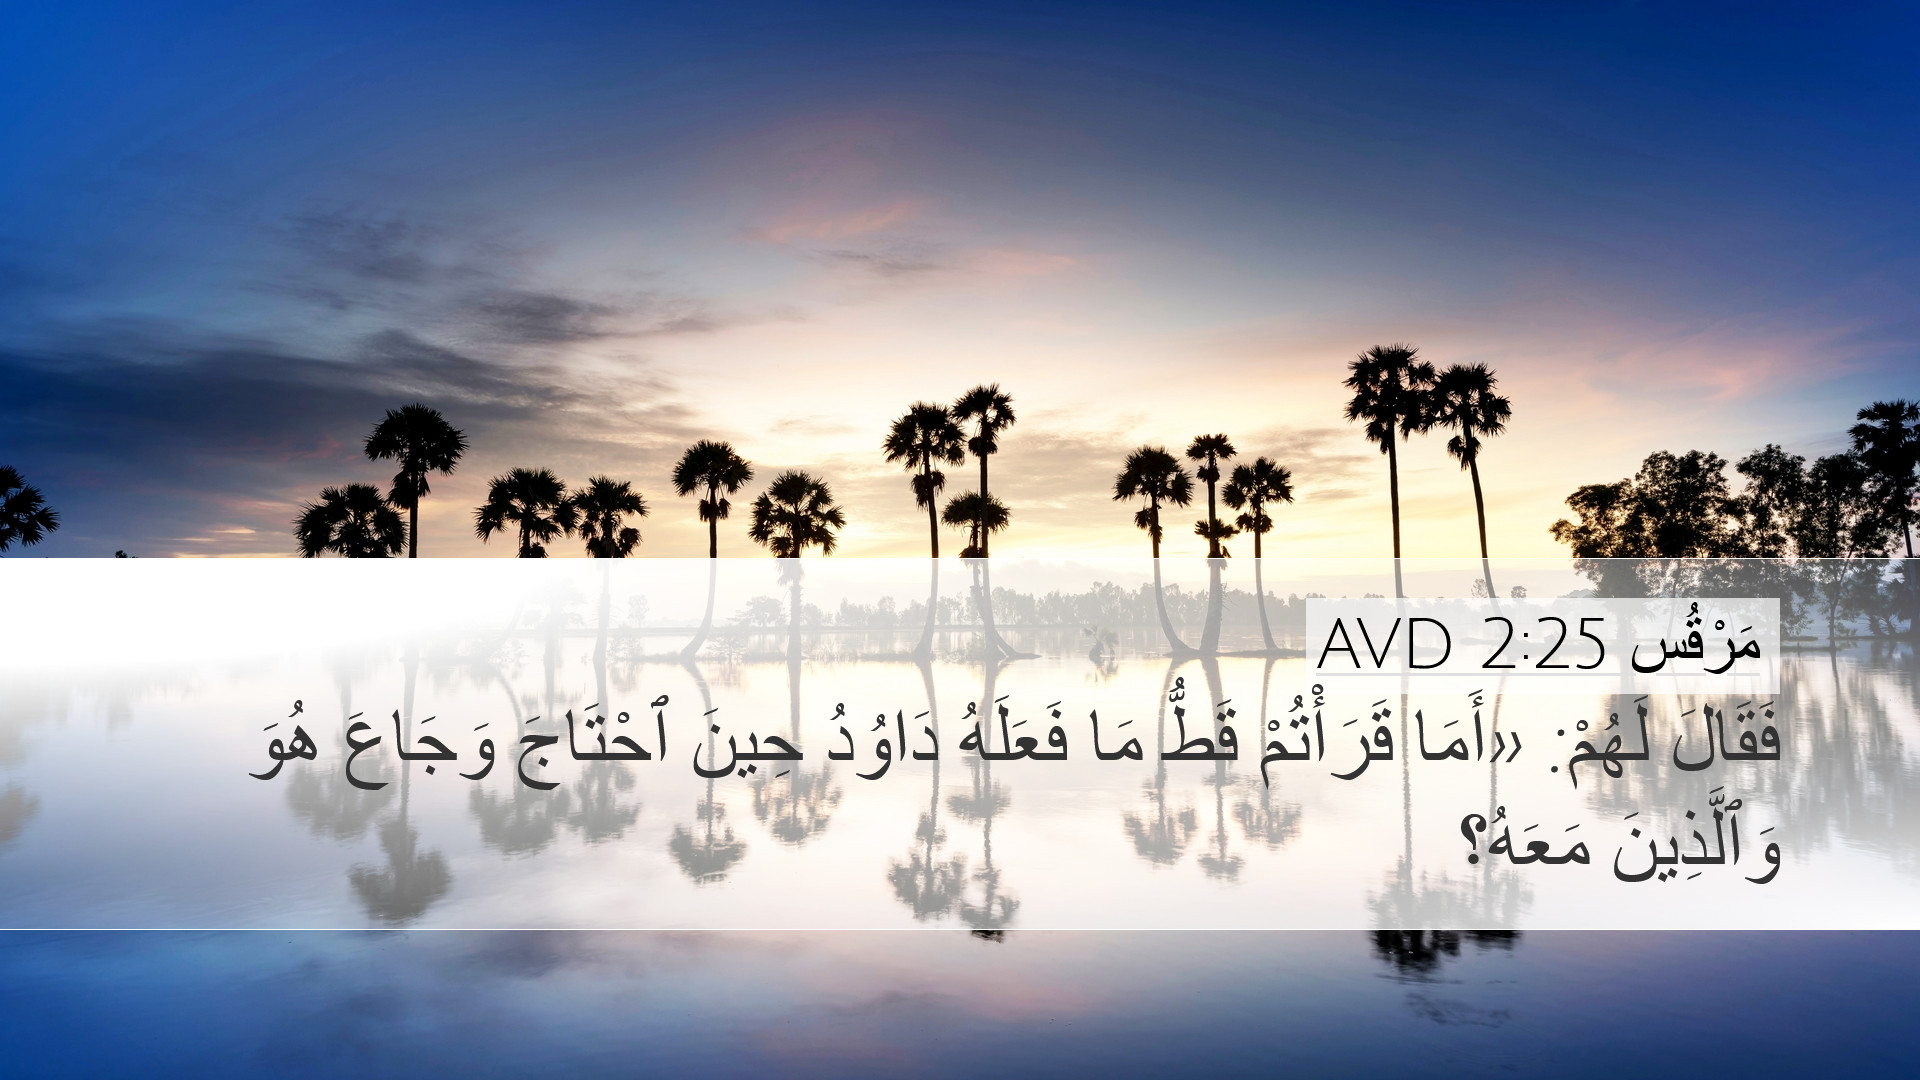 مَرْقُس 2:25 AVD
فَقَالَ لَهُمْ: «أَمَا قَرَأْتُمْ قَطُّ مَا فَعَلَهُ دَاوُدُ حِينَ ٱحْتَاجَ وَجَاعَ هُوَ
وَٱلَّذِينَ مَعَهُ؟